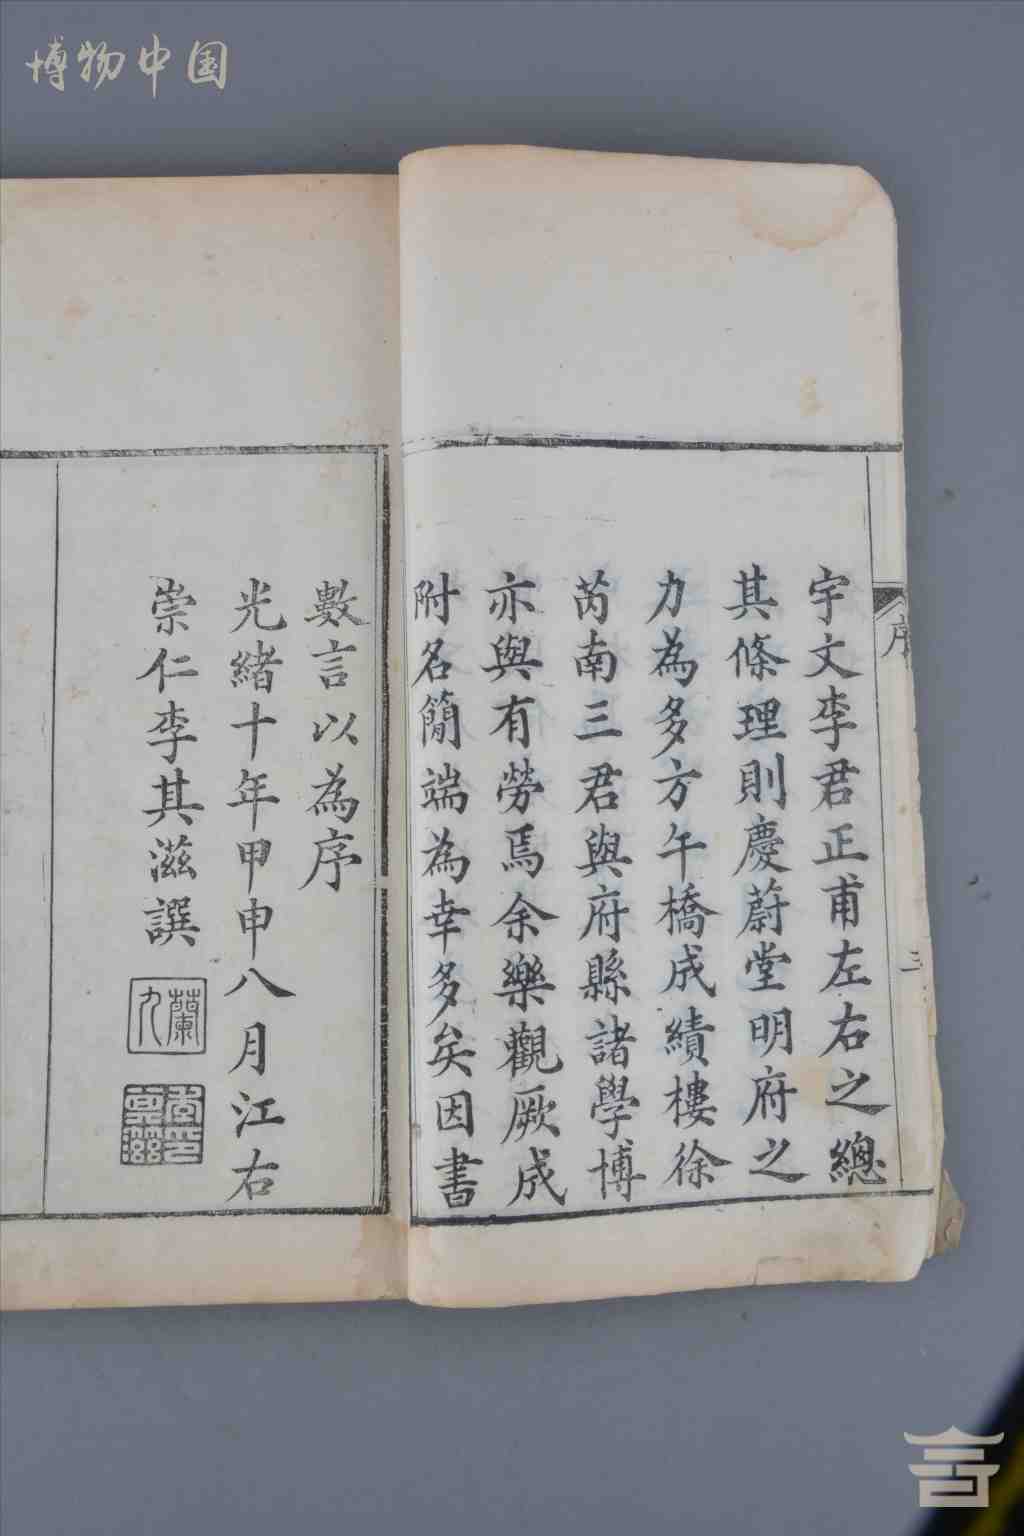 博物中国
宇文李君正甫左右之總
其條理則慶蔚堂明府之
力為多方午橋成績樓徐
芮南三君與府縣諸學博
亦與有勞焉余樂觀厥成
附名簡端為幸多矣因書
序
三
數言以為序
光緒十年甲申八月江右
崇仁李其滋譔
蘭九
李其滋印